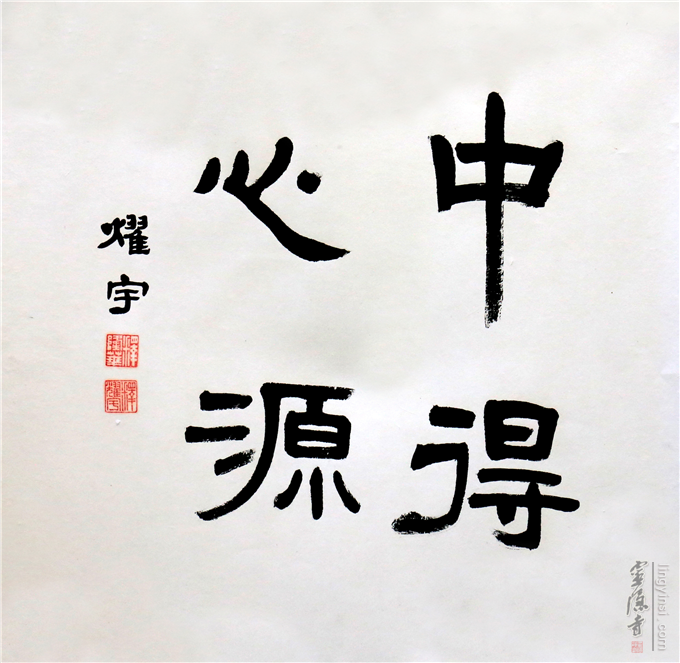 中得
心源
燿宇
lingyinsi.com